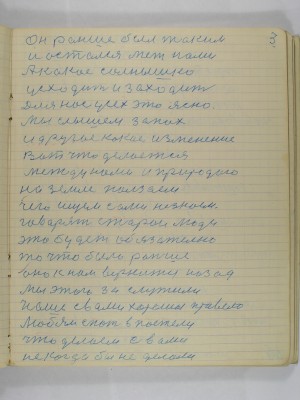 Он раньше был таким
и остался меж нами
А какое солнышко
усходит и заходит
для нас усех это ясно.
Мы слышем запах
и друзье какое изменение
Вот что делается
между нами и природою
на земле ползаем
чего ищем сами незнаем.
говорят старои люди
это будет обязательно
то что было раньше
оно к нам вернится назад
мы этого за служили
с вами хороших правело
спат в постели
что делаем с вами
некогда бы не делали